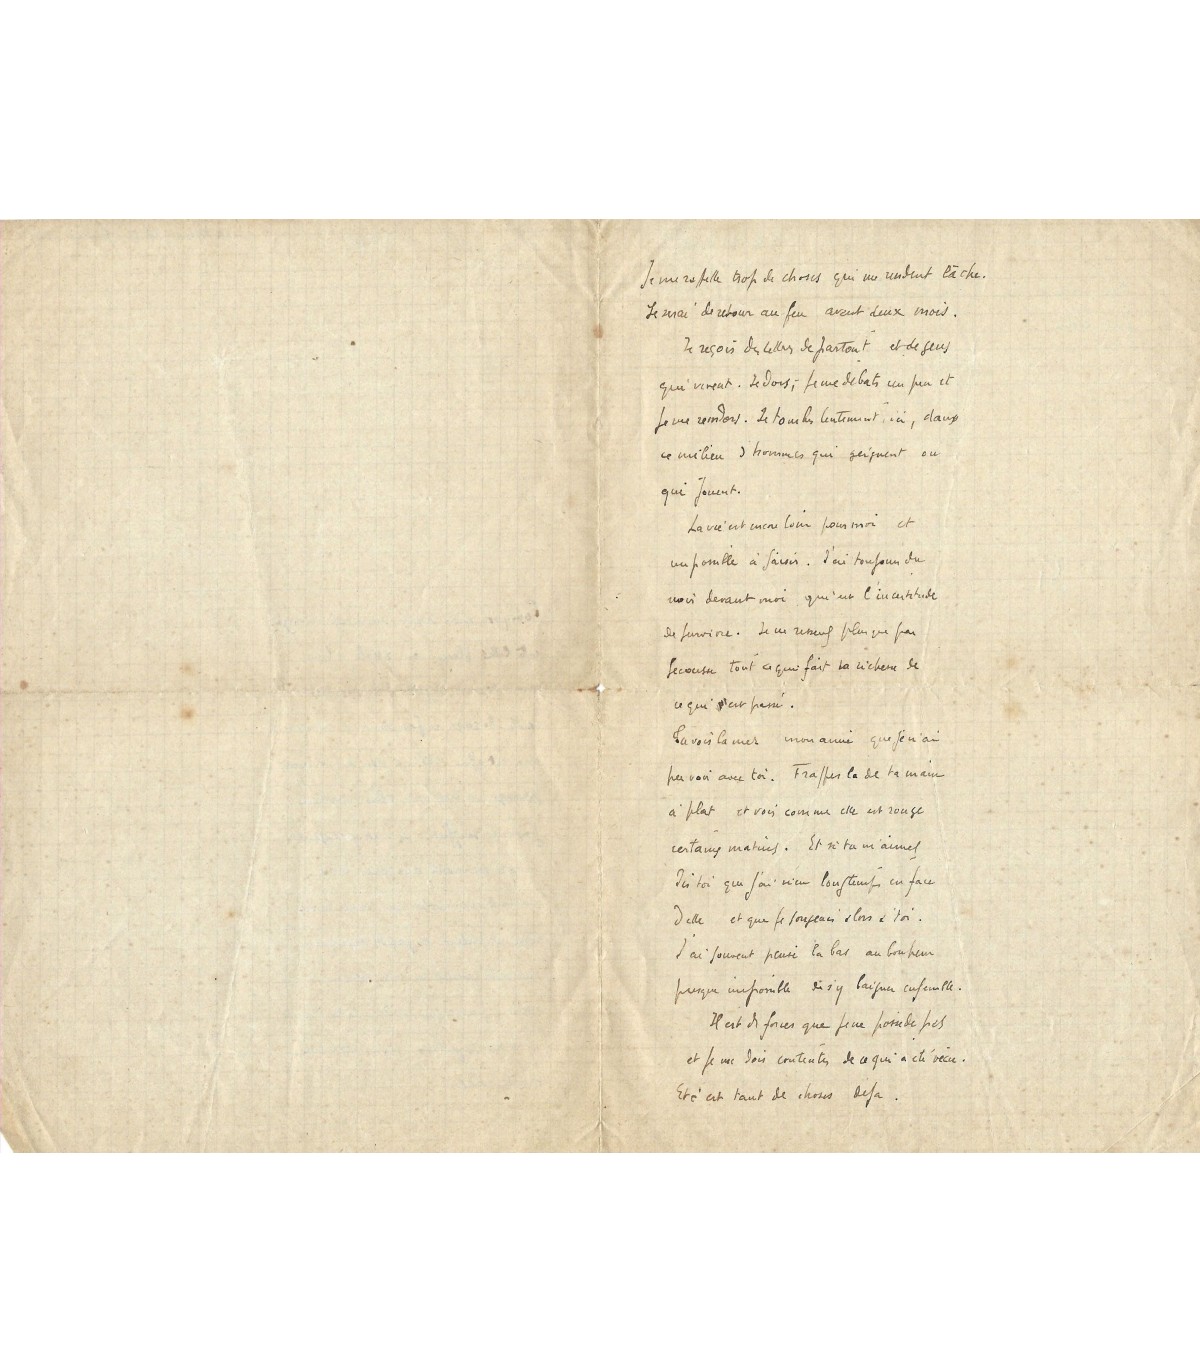 Je me rapelle trop de choses qui me rendent lâche.
Je serai de retour au feu avant deux mois.
Je reçois des lettres de partout et de gens
qui vivent. Je dors, je me débats un peu et
je me rendors. Je tombe lentement ici, dans
ce milieu d'hommes qui geignent ou
qui jouent.
La vie est encore loin pour moi et
impossible à saisir. J'ai toujours du
noir devant moi qui est l'incertitude
de survivre. Je ne ressens plus que par
secousse tout ce qui fait la richesse de
ce qui est passé.
Tu vois la mer mon amie que je n'ai
pu voir avec toi. Frappes la de ta main
à plat et vois comme elle est rouge
certains matins. Et si tu m'aimes
dis toi que j'ai vécu longtemps en face
d'elle et que je songeais alors à toi.
J'ai souvent pensé là bas au bonheur
presque impossible de s'y baigner ensemble.
Il est des forces que je ne possède pas
et je me dois contenter de ce qui a été vécu.
Et c'est tant de choses déjà.